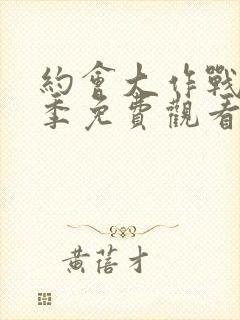 約會大作戰
季免費觀看
黃蓓才